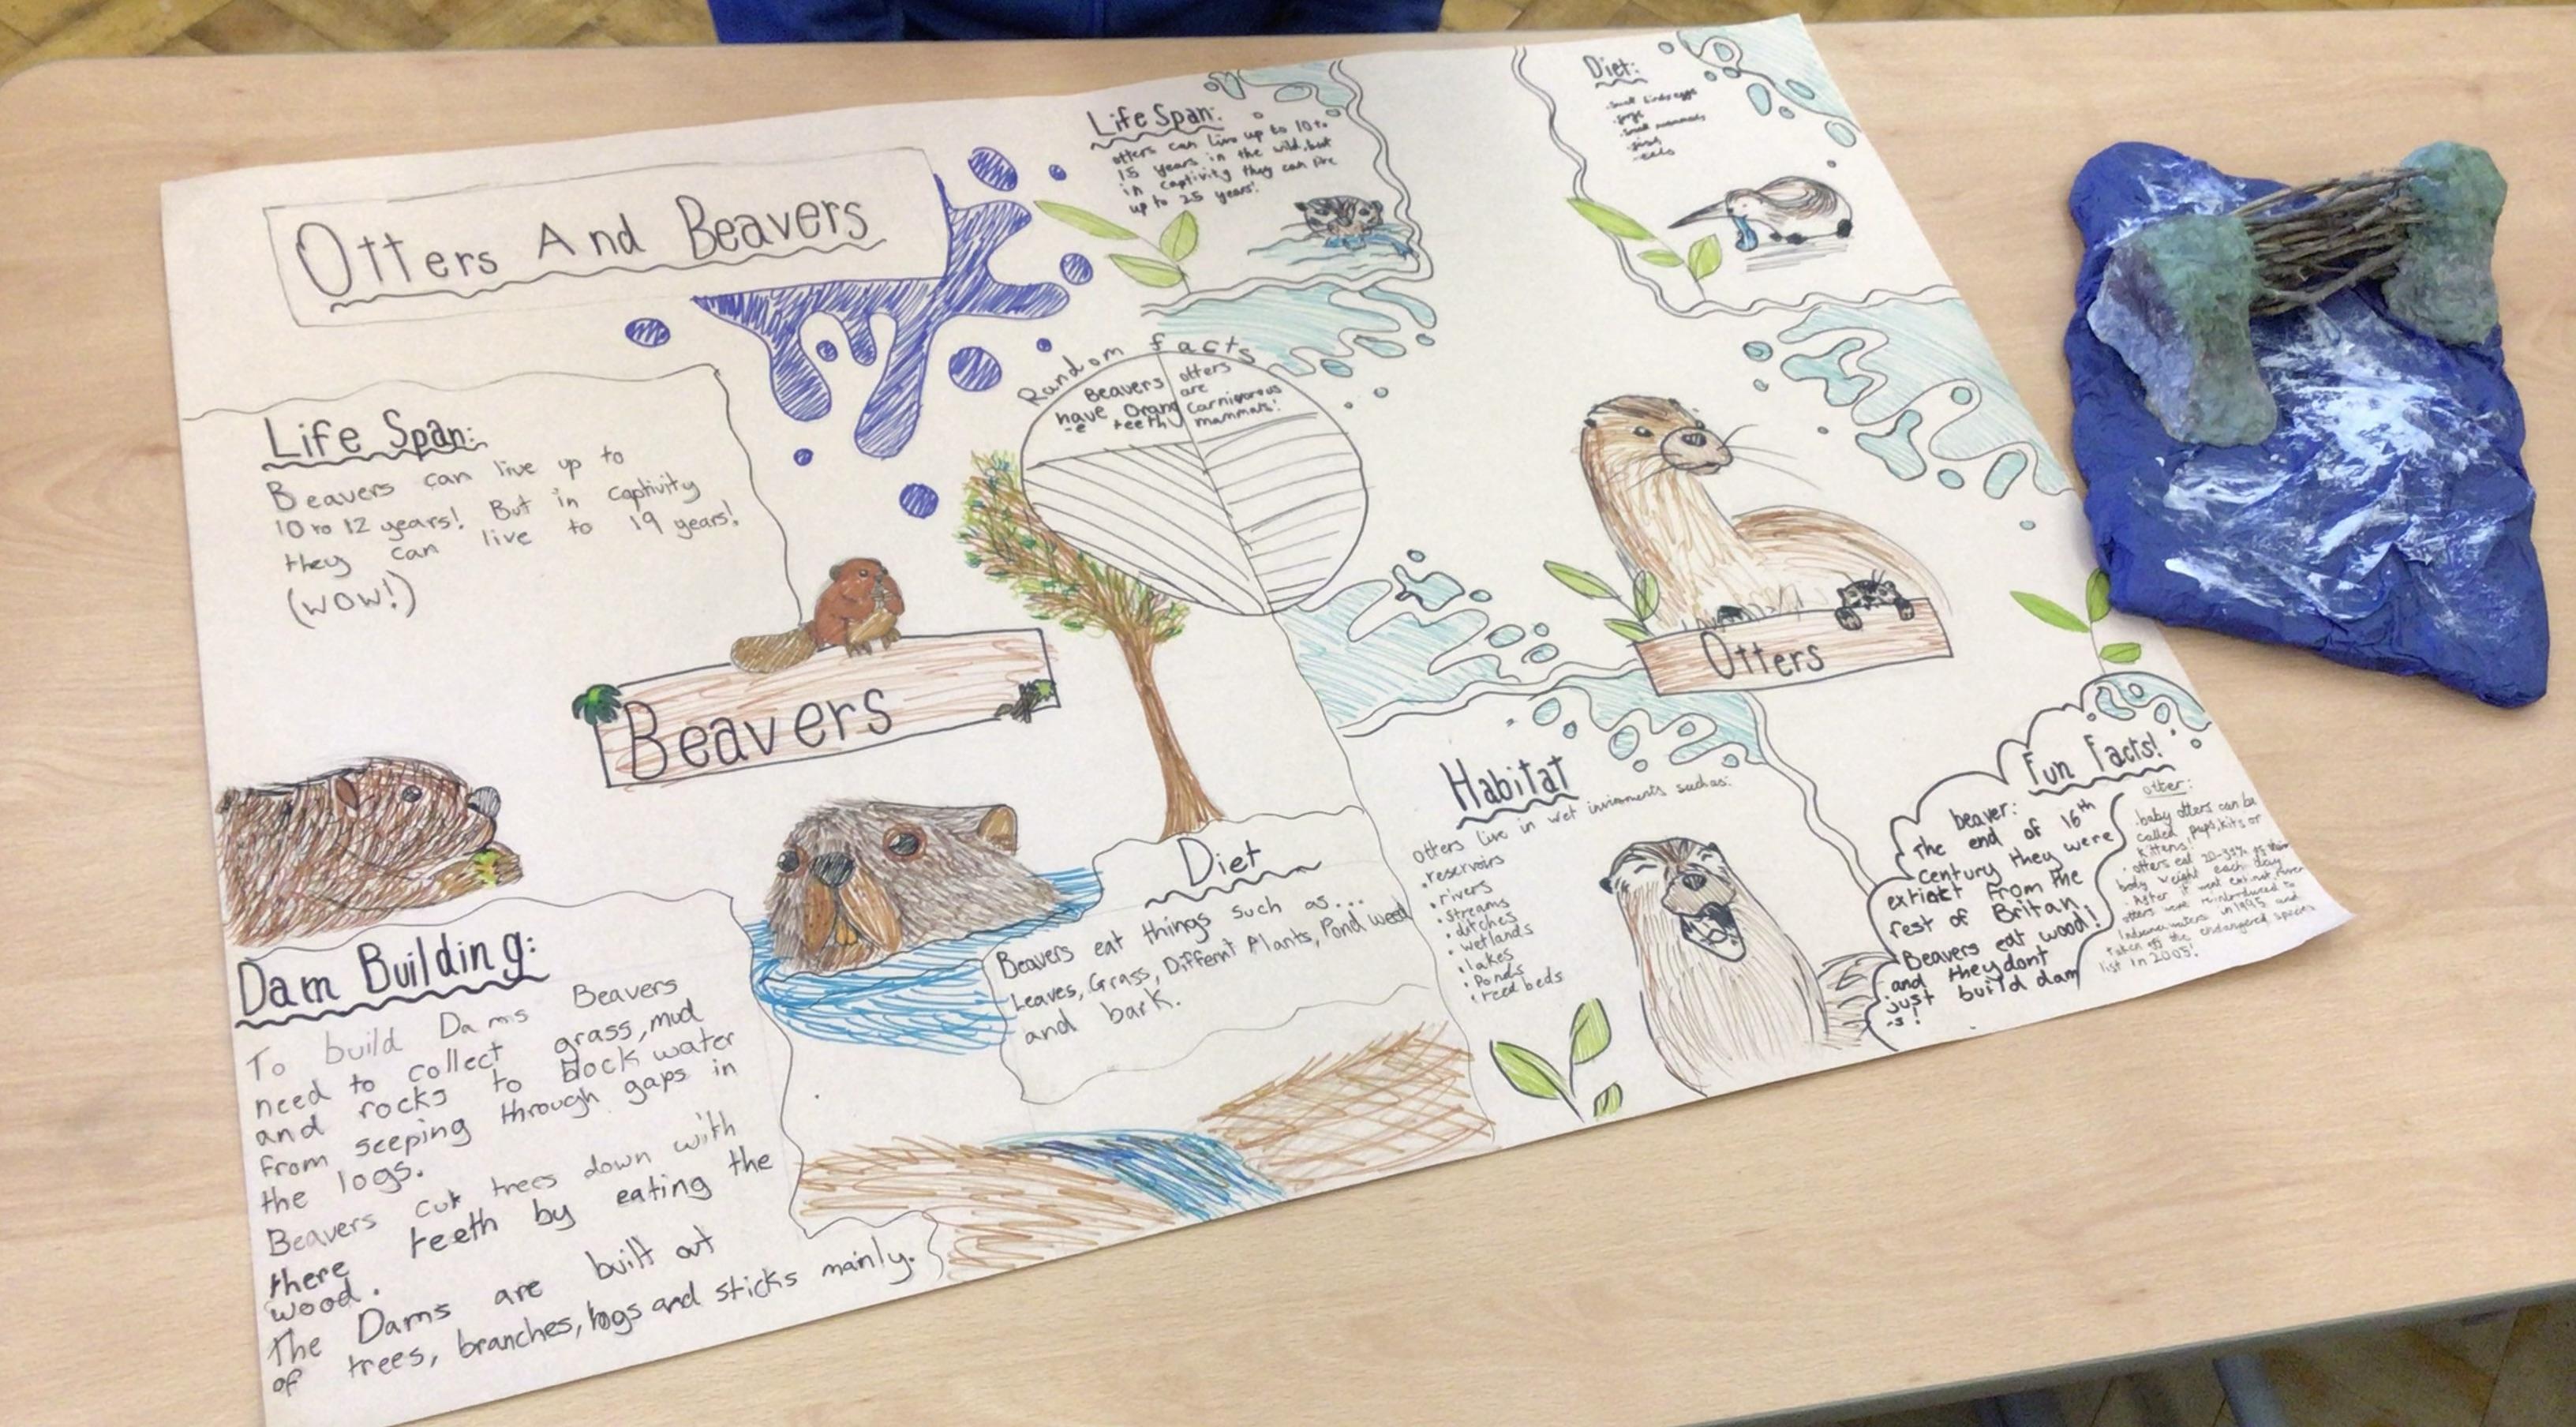 Otters And Beavers
Life Span:
Beavers can live up to
10 to 12 years! But in captivity
they can live to 19 years!
(WOW!)
Beavers
Dam Building:
To build Dams Beavers
need to collect grass, mud
and rocks to block water
from seeping through gaps in
the logs.
Beavers cut trees down with
there teeth by eating the
wood.
The Dams are built out
of trees, branches, logs and sticks mainly.
Random facts
Beavers
have Orang
-e teeth
otters
are
carnivorous
mammals!
Diet
Beavers eat things such as...
Leaves, Grass, Differnt Plants, Pond weed
and bark.
Life Span:
otters can live up to 10 to
15 years in the wild, but
in captivity they can live
up to 25 years!
Diet:
small birds eggs
frogs
small mammals
fish
eels
Otters
Habitat
Otters live in wet inviroments such as:
reservoirs
rivers
streams
ditches
wetlands
lakes
Ponds
reed beds
Fun Facts!
beaver:
The end of 16th
century they were
extinct from the
rest of Britan.
Beavers eat wood!
and they dont
just build dam
-s!
otter:
baby otters can be
called pups, kits or
kittens!
otters eat of their
body weight each day
After it went extinct River
otters were reintroduced to
Indiana waters in 1995 and
taken off the endangered species
list in 2005!